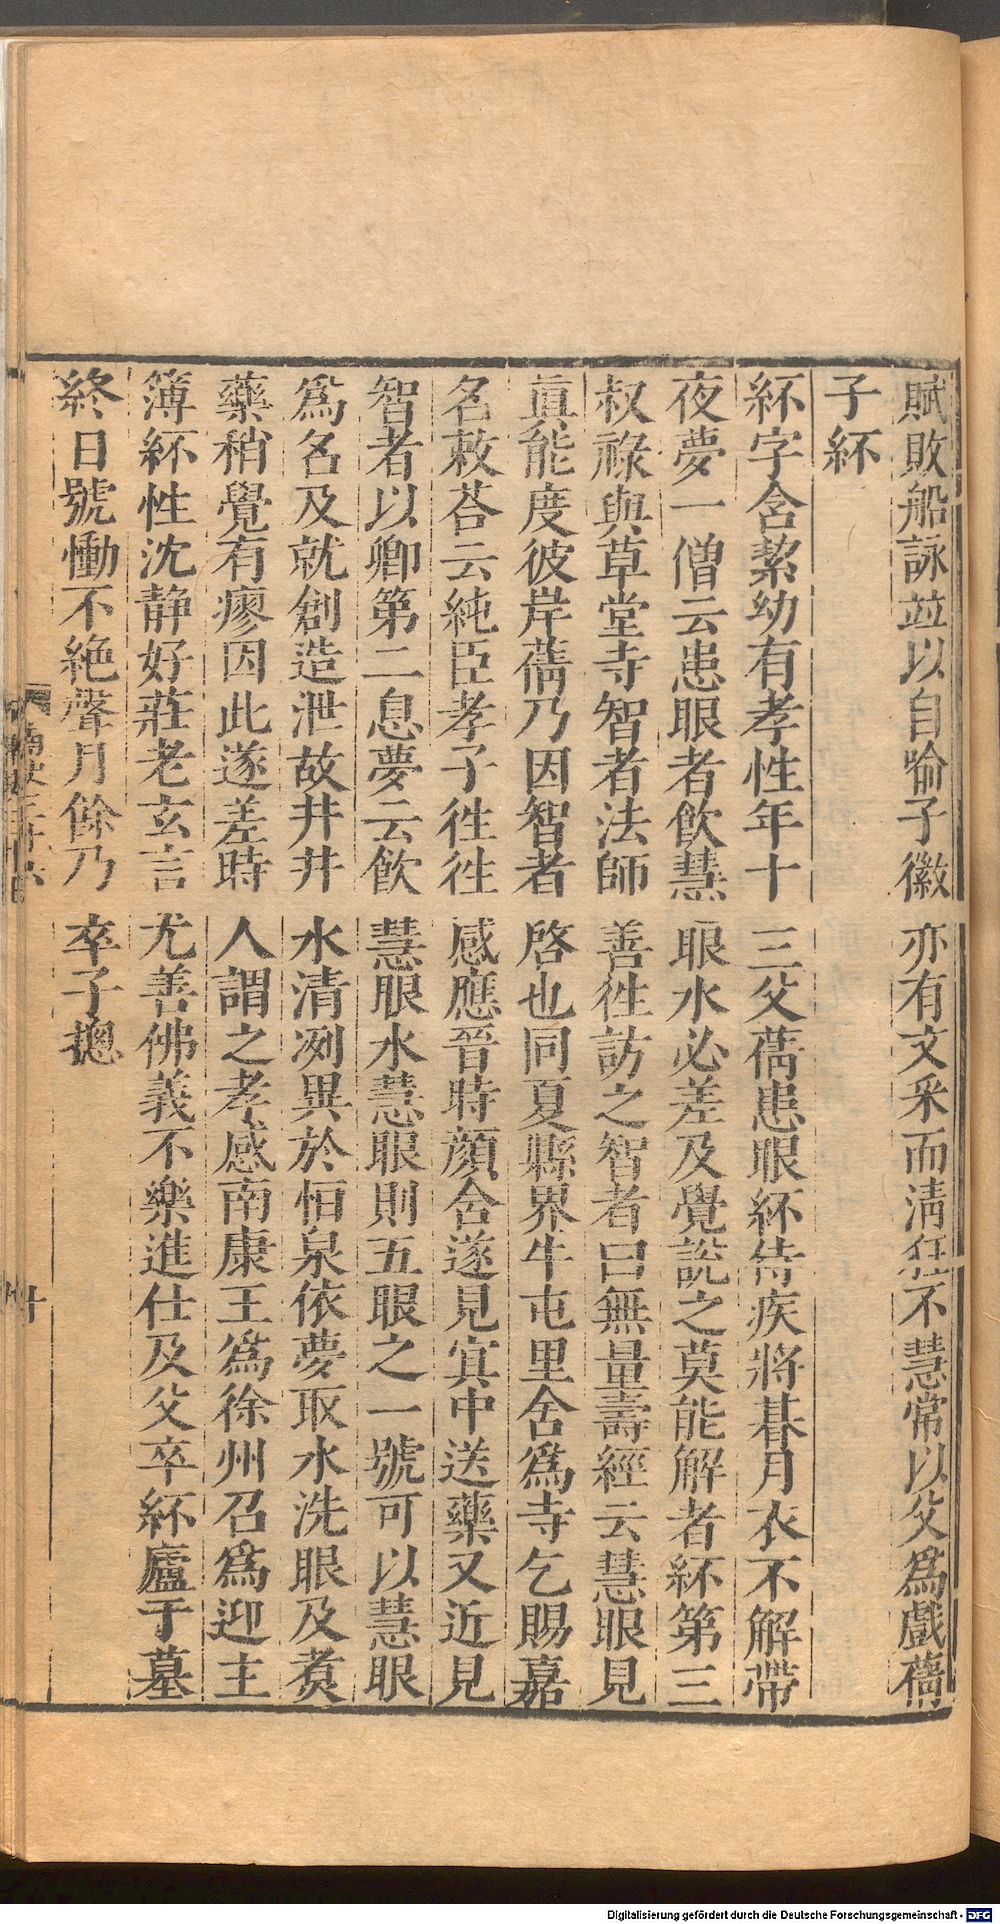 賦敗船詠並以自喻子徽亦有文采而清狂不慧常以父爲戲蒨
子紑
紑字含絜幼有孝性年十三父蒨患眼紑侍疾將朞月衣不解帶
夜夢一僧云患眼者飲慧眼水必差及覺說之莫能解者紑第三
叔祿與草堂寺智者法師善徃訪之智者曰無量壽經云慧眼見
眞能度彼岸蒨乃因智者啓也同夏縣界牛屯里舍爲寺乞賜嘉
名敕荅云純臣孝子徃徃感應晉時顔含遂見宜中送藥又近見
智者以卿第二息夢云飲慧眼水慧眼則五眼之一號可以慧眼
爲名及就創造泄故井井水清洌異於恒泉依夢取水洗眼及煑
藥稍覺有瘳因此遂差時人謂之孝感南康王爲徐州召爲迎主
簿紑性沈静好莊老玄言尤善佛義不樂進仕及父卒紑廬于墓
終日號慟不絶聲月餘乃卒子摠
十
Digitalisierung gefördert durch die Deutsche Forschungsgemeinschaft - DFG